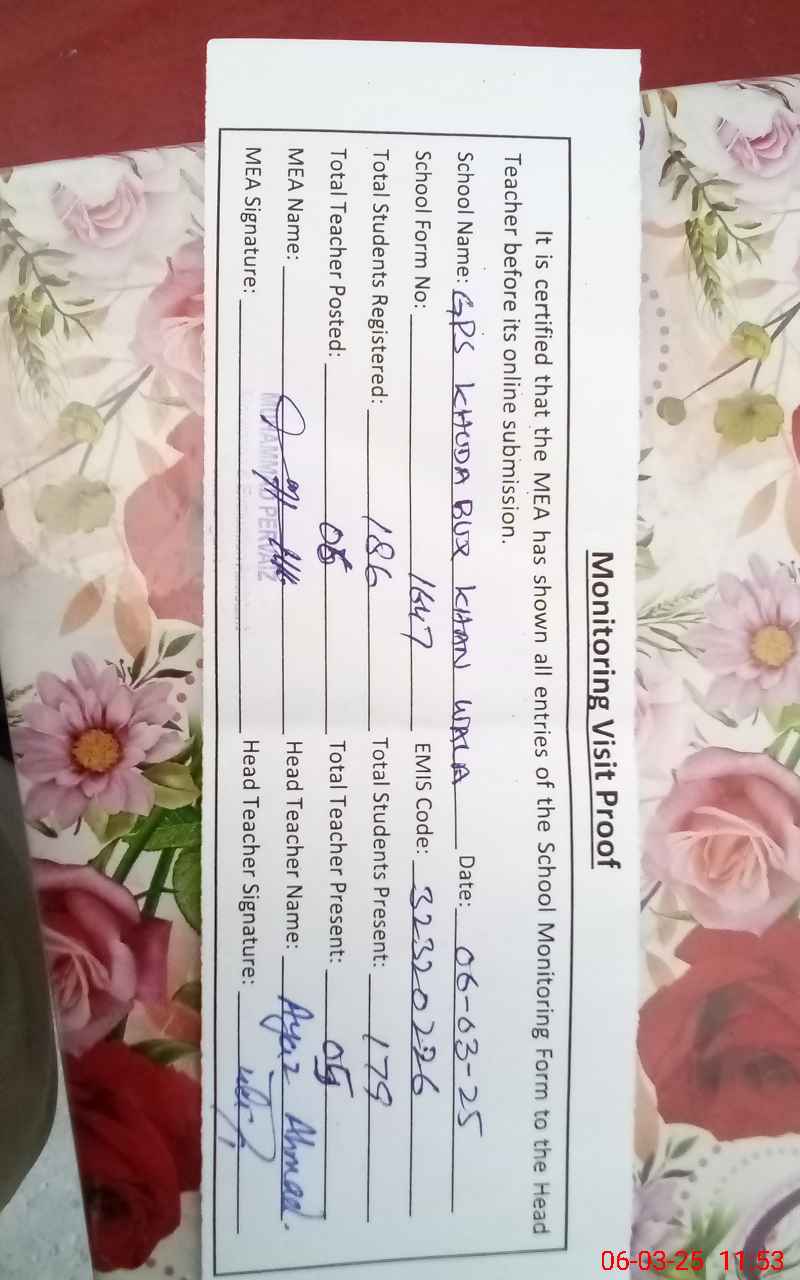 Monitoring Visit Proof
It is certified that the MEA has shown all entries of the School Monitoring Form to the Head
Teacher before its online submission.
School Name: GPS KHUDA BUX KHAN WALA Date: 06-03-25
School Form No: 1647 EMIS Code: 32320226
Total Students Registered: 186 Total Students Present: 179
Total Teacher Posted: Total Teacher Present: 05
MEA Name: Head Teacher Name: Ayaz Ahmad.
MEA Signature: MUHAMMAD PERVAIZ Head Teacher Signature:
06-03-25 11:53